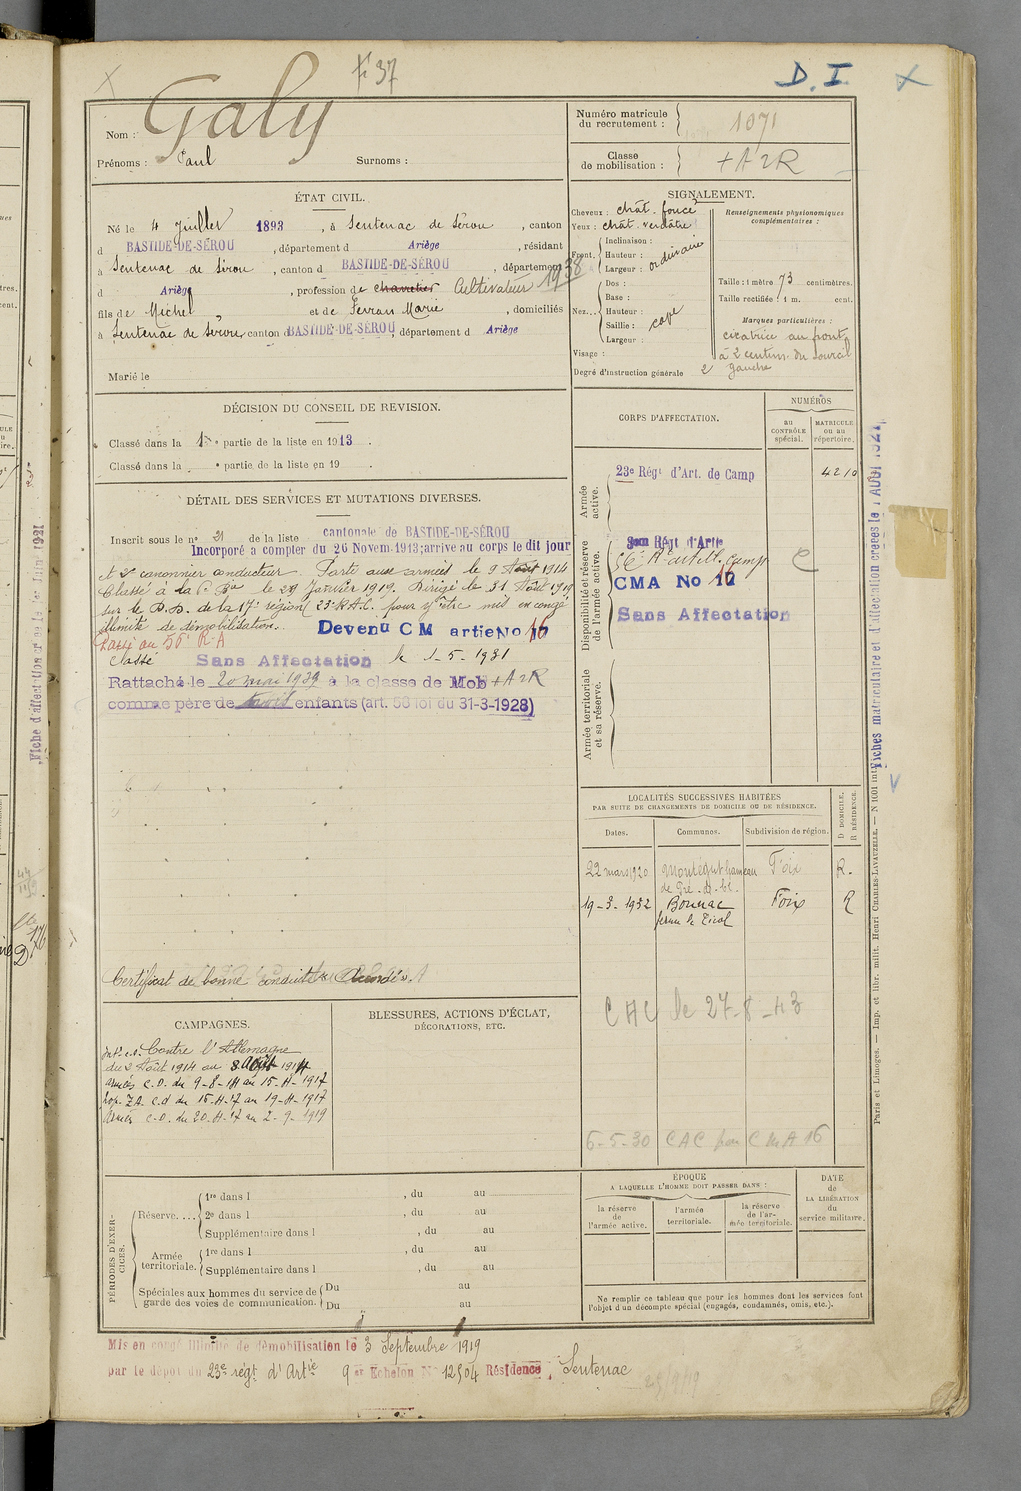 F 37
D. I
Nom : Galy
Prénoms : Paul Surnoms :
Numéro matricule du recrutement : 1071
Classe de mobilisation : + A 2 R
ÉTAT CIVIL.
Né le 4 Juillet 1893, à Sentenac de Sérou, canton
d BASTIDE-DE-SÉROU, département d Ariège, résidant
à Sentenac de Sérou, canton d BASTIDE-DE-SÉROU, département
d Ariège, profession de charretier Cultivateur 1938
fils de Michel et de Ferran Marie, domiciliés
à Sentenac de Sérou, canton d BASTIDE-DE-SÉROU, département d Ariège
Marié le
SIGNALEMENT.
Cheveux : chât. foncé
Yeux : chât. verdâtre
Front. Inclinaison :
Hauteur : ordinaire
Largeur :
Nez... Dos :
Base :
Hauteur :
Saillie : cave
Largeur :
Visage :
Degré d'instruction générale 2
Renseignements physionomiques complémentaires :
Taille : 1 mètre 73 centimètres.
Taille rectifiée : 1 m. cent.
Marques particulières :
cicatrice au front
à 2 centim. du sourcil
gauche
DÉCISION DU CONSEIL DE REVISION.
Classé dans la 1re partie de la liste en 1913.
Classé dans la e partie de la liste en 19 .
DÉTAIL DES SERVICES ET MUTATIONS DIVERSES.
Inscrit sous le no 21 de la liste cantonale de BASTIDE-DE-SÉROU
Incorporé à compter du 26 Novem. 1913; arrivé au corps le dit jour
et 2e canonnier conducteur. Parti aux armées le 9 Août 1914
Classé à la 6e Bie le 29 Janvier 1919. Dirigé le 31 Août 1919
sur le D.D. de la 17e région (23e R.A.C. pour y être mis en congé
illimité de démobilisation. Devenu C M artie No 16
Passé au 56e R.A
Classé Sans Affectation le 1-5-1931
Rattaché le 20 mai 1939 à la classe de Mob + A 2 R
comme père de trois enfants (art. 58 loi du 31-3-1928)
Certificat de bonne conduite "Accordé".
CORPS D'AFFECTATION.
NUMÉROS
au CONTRÔLE spécial.
MATRICULE ou au répertoire.
Armée active.
23e Régt d'Art. de Camp 4210
Disponibilité et réserve de l'armée active.
56e Rt d'artill. Camp
CMA No 16
Sans Affectation
Armée territoriale et sa réserve.
LOCALITÉS SUCCESSIVES HABITÉES
PAR SUITE DE CHANGEMENTS DE DOMICILE OU DE RÉSIDENCE.
Dates. Communes. Subdivision de région. D DOMICILE, R RÉSIDENCE.
22 mars 1920 Montégut Foix R.
19-3-1932 Bonnac Foix R
CAC le 27-8-43
6-5-30 CAC pour CMA 16
CAMPAGNES.
Intr. c.d. Contre l'Allemagne
du 2 Août 1914 au 8 Août 1914
Armées C.D. du 9-8-14 au 15-11-1917
hop. ZA. c.d du 16-11-17 au 19-11-1917
Armées C.D. du 20-11-17 au 2-9-1919
BLESSURES, ACTIONS D'ÉCLAT,
DÉCORATIONS, ETC.
PÉRIODES D'EXERCICES.
Réserve.... 1re dans l , du au
2e dans l , du au
Supplémentaire dans l , du au
Armée territoriale. 1re dans l , du au
Supplémentaire dans l , du au
Spéciales aux hommes du service de garde des voies de communication. Du au
Du au
ÉPOQUE
A LAQUELLE L'HOMME DOIT PASSER DANS :
la réserve de l'armée active.
l'armée territoriale.
la réserve de l'armée territoriale.
DATE de LA LIBÉRATION du service militaire.
Ne remplir ce tableau que pour les hommes dont les services font
l'objet d'un décompte spécial (engagés, condamnés, omis, etc.).
Mis en congé illimité de démobilisation le 3 Septembre 1919
par le dépôt du 23e régt d'Artie 9e Echelon No 12504 Résidence : Sentenac
Fiches matriculaire et d'affectation créées le 1 AOUT 1921
Paris et Limoges. — Imp. et libr. milit. Henri CHARLES-LAVAUZELLE. — N 1001 int